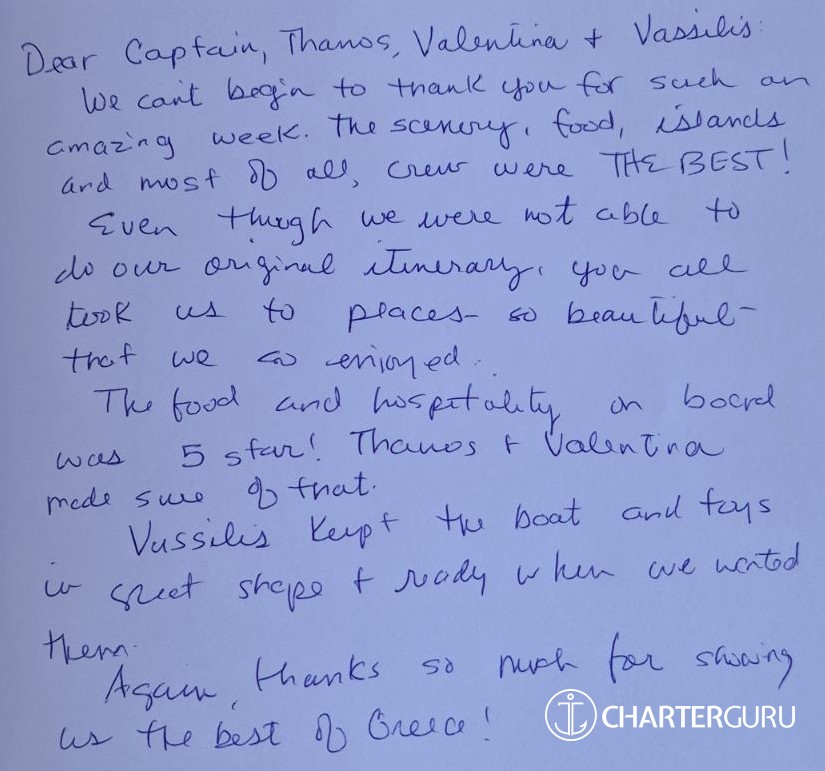 Dear Captain, Thanos, Valentina + Vassilis:
We can't begin to thank you for such an
amazing week. The scenery, food, islands
and most of all, crew were THE BEST!
Even though we were not able to
do our original itinerary, you all
took us to places - so beautiful -
that we so enjoyed.
The food and hospitality on board
was 5 star! Thanos + Valentina
made sure of that.
Vassilis kept the boat and toys
in great shape + ready when we wanted
them.
Again, thanks so much for showing
us the best of Greece!
CHARTERGURU